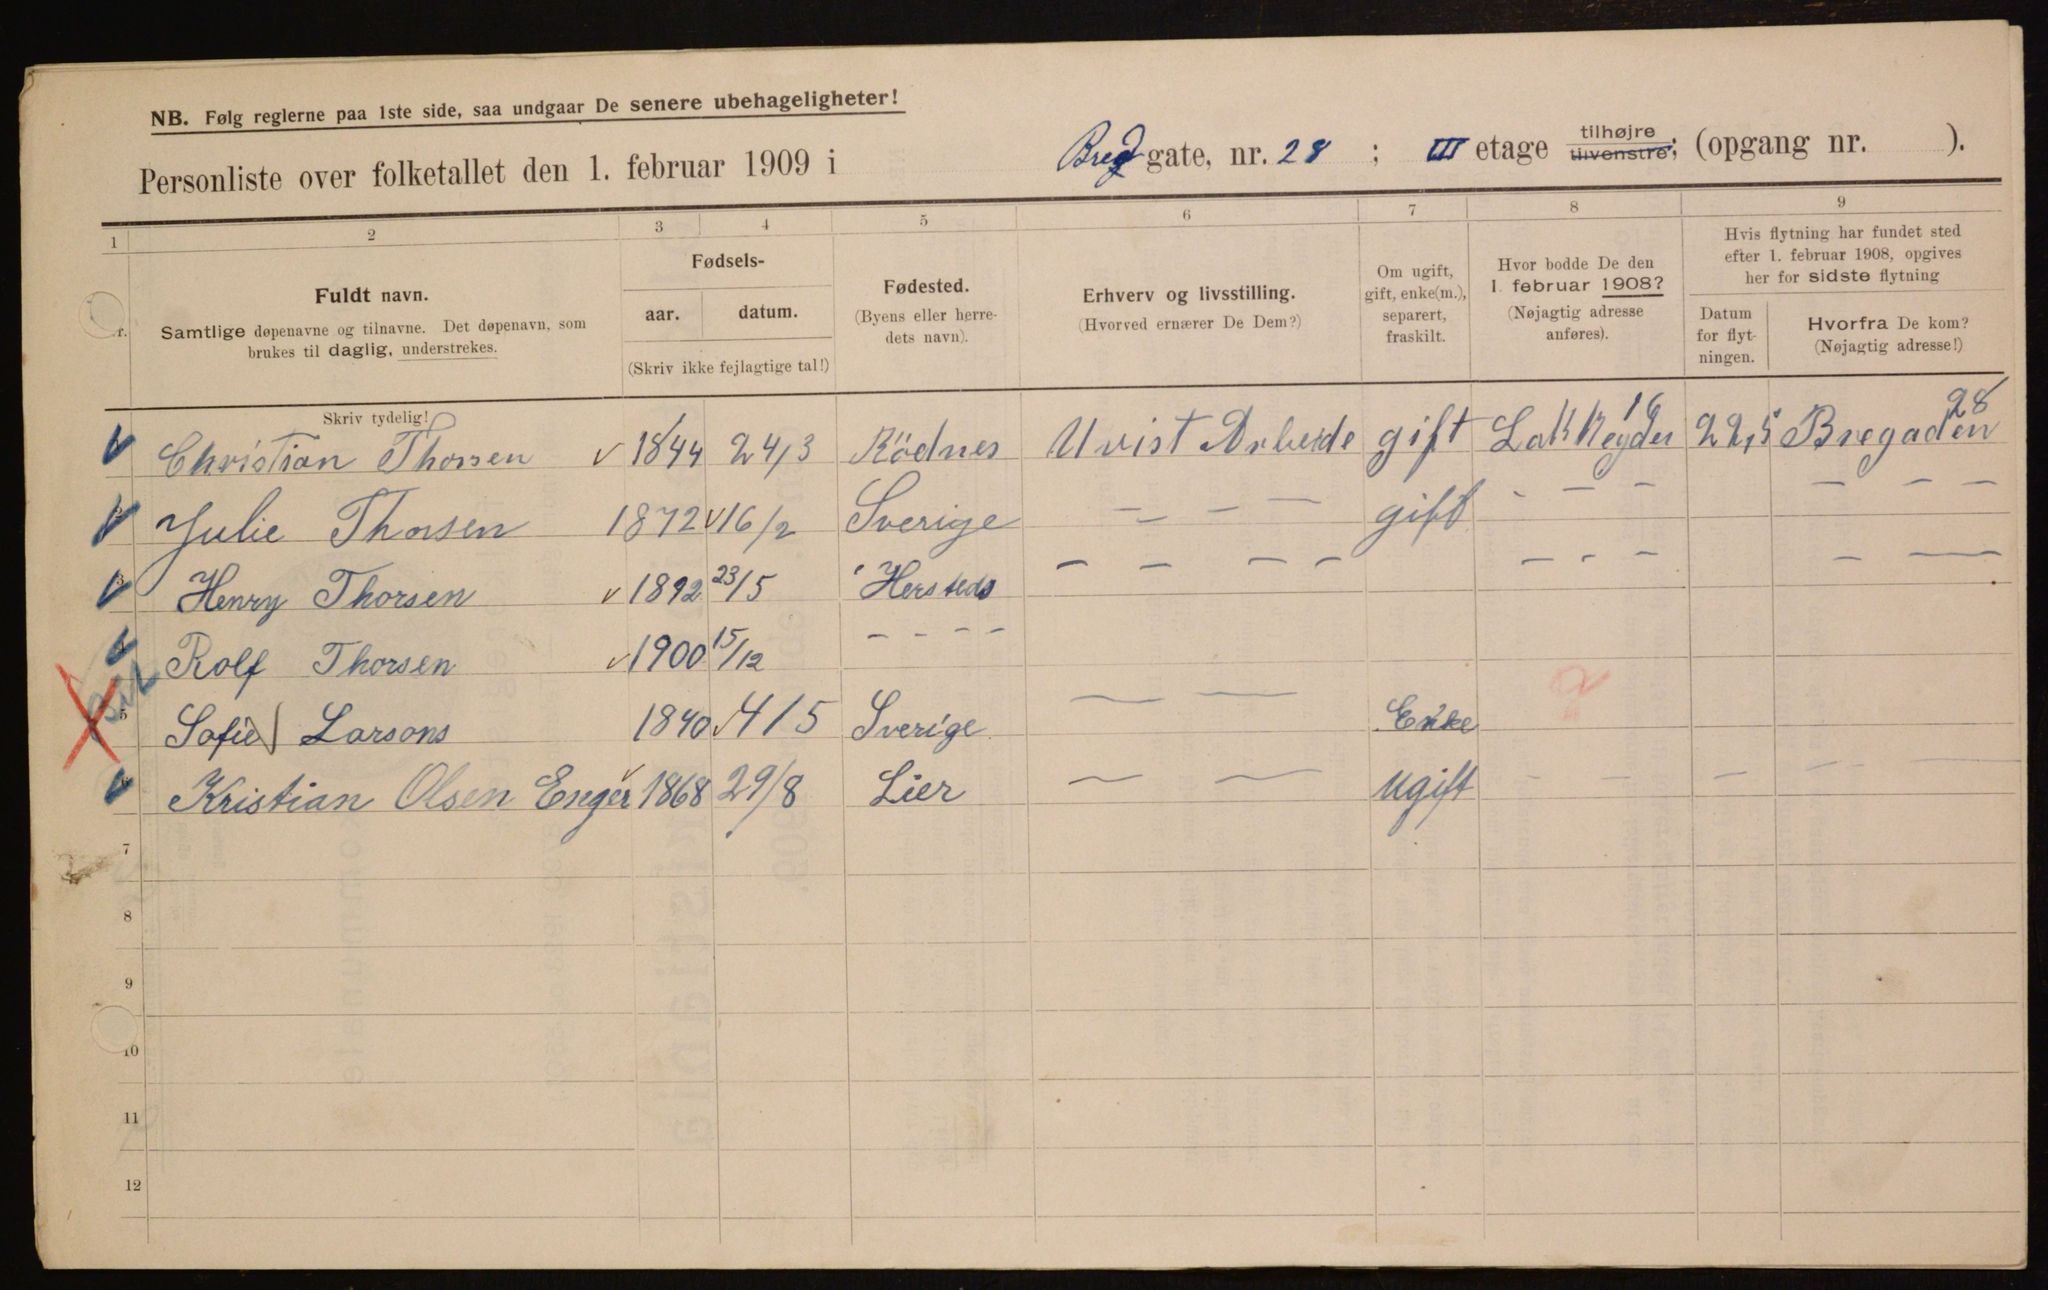 NB. Følg reglerne paa 1ste side, saa undgaar De senere ubehageligheter!
Personliste over folketallet den 1. februar 1909 i Bred gate, nr. 28 ; III etage tilhøjre tilvenstre; (opgang nr. ).
1 2 3 4 5 6 7 8 9
Fuldt navn.
Samtlige døpenavne og tilnavne. Det døpenavn, som
brukes til daglig, understrekes.
Fødsels-
aar. datum.
(Skriv ikke fejlagtige tal!)
Fødested.
(Byens eller herre-
dets navn).
Erhverv og livsstilling.
(Hvorved ernærer De Dem?)
Om ugift,
gift, enke(m.),
separert,
fraskilt.
Hvor bodde De den
1. februar 1908?
(Nøjagtig adresse
anføres).
Hvis flytning har fundet sted
efter 1. februar 1908, opgives
her for sidste flytning
Datum
for flyt-
ningen.
Hvorfra De kom?
(Nøjagtig adresse!)
Skriv tydelig!
Christian Thorsen 1844 24/3 Rödnes Uvist Arbeide gift 16 22,5 Bregaden 28
Julie Thorsen 1872 16/2 Sverige — — — gift - — — — — —
3 Henry Thorsen 1892 23/5 — — — — — - — — —
Rolf Thorsen 1900 15/12 - - - -
5 Sofie Larsons 1840 4/5 Sverige — — Enke
Kristian Olsen Enger 1868 29/8 Lier — — ugift — — — — —
7
8
9
10
11
12